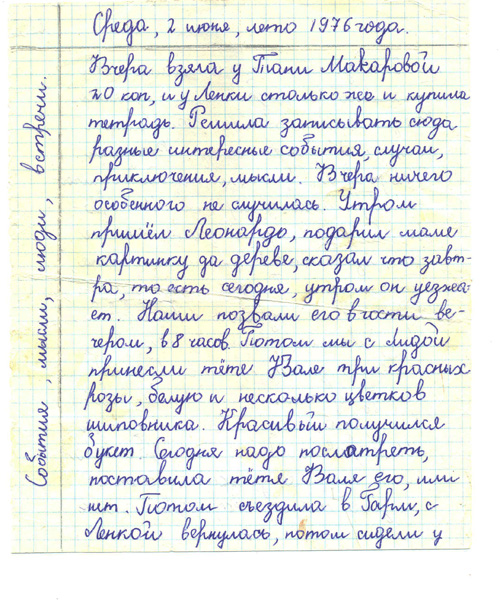 Среда, 2 июня, лето 1976 года.
События, мысли, люди, встречи.
Вчера взяла у Тани Макаровой
20 коп, и у Ленки столько же и купила
тетрадь. Решила записывать сюда
разные интересные события, случаи,
приключения, мысли. Вчера ничего
особенного не случилась. Утром
пришёл Леонардо, подарил маме
картинку да дереве, сказал что завт-
ра, то есть сегодня, утром он уезжа-
ет. Наши позвали его в гости ве-
чером, в 8 часов. Потом мы с Лидой
принесли тёте Вале три красных
розы, белую и несколько цветков
шиповника. Красивый получился
букет. Сегодня надо посмотреть,
поставила тётя Валя его, или
нет. Потом съездила в Гарм, с
Ленкой вернулась, потом сидели у